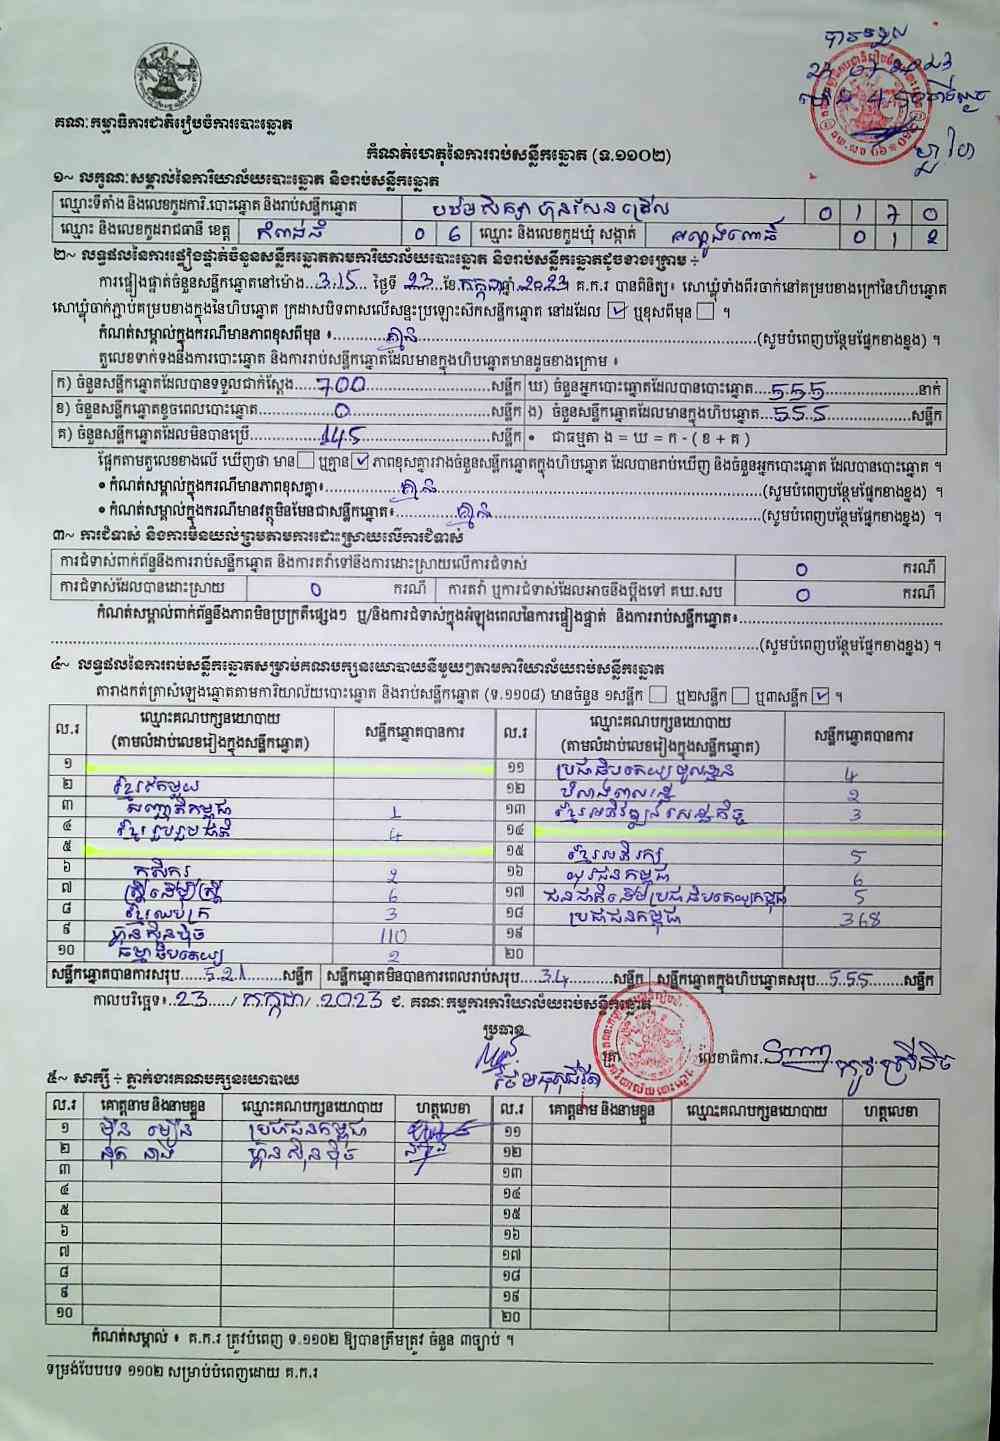 គណៈកម្មាធិការជាតិរៀបចំការបោះឆ្នោត
កំណត់ហេតុនៃការរាប់សន្លឹកឆ្នោត (ទ.១១០២)
១~ លក្ខណៈសម្គាល់នៃការិយាល័យបោះឆ្នោត និងរាប់សន្លឹកឆ្នោត
ឈ្មោះទីតាំង និងលេខកូដការិ.បោះឆ្នោត និងរាប់សន្លឹកឆ្នោត 0 1 7 0
ឈ្មោះ និងលេខកូដរាជធានី ខេត្ត កំពង់ធំ 0 6 ឈ្មោះ និងលេខកូដឃុំ សង្កាត់ 0 1 2
២~ លទ្ធផលនៃការផ្ទៀងផ្ទាត់ចំនួនសន្លឹកឆ្នោតតាមការិយាល័យបោះឆ្នោត និងរាប់សន្លឹកឆ្នោតដូចខាងក្រោម ÷
ការផ្ទៀងផ្ទាត់ចំនួនសន្លឹកឆ្នោតនៅម៉ោង...3:15... ថ្ងៃទី 23 ខែ កក្កដា ឆ្នាំ 2023 គ.ក.រ បានពិនិត្យ៖ សោឃ្លុំទាំងពីរចាក់នៅគម្របខាងក្រៅនៃហិបឆ្នោត
សោឃ្លុំចាក់ភ្ជាប់គម្របខាងក្នុងនៃហិបឆ្នោត ក្រដាសបិទពាសលើសន្ទះប្រឡោះស៊កសន្លឹកឆ្នោត នៅដដែល ☑ ឬខុសពីមុន ☐ ។
កំណត់សម្គាល់ក្នុងករណីមានភាពខុសពីមុន ÷ គ្មាន (សូមបំពេញបន្ថែមផ្នែកខាងខ្នង) ។
តួលេខទាក់ទងនឹងការបោះឆ្នោត និងការរាប់សន្លឹកឆ្នោតដែលមានក្នុងហិបឆ្នោតមានដូចខាងក្រោម ៖
ក) ចំនួនសន្លឹកឆ្នោតដែលបានទទួលជាក់ស្តែង 700 សន្លឹក ឃ) ចំនួនអ្នកបោះឆ្នោតដែលបានបោះឆ្នោត 555 នាក់
ខ) ចំនួនសន្លឹកឆ្នោតខូចពេលបោះឆ្នោត 0 សន្លឹក ង) ចំនួនសន្លឹកឆ្នោតដែលមានក្នុងហិបឆ្នោត 555 សន្លឹក
គ) ចំនួនសន្លឹកឆ្នោតដែលមិនបានប្រើ 145 សន្លឹក • ជាធម្មតា ង = ឃ = ក - ( ខ + គ )
ផ្អែកតាមតួលេខខាងលើ ឃើញថា មាន ☐ ឬគ្មាន ☑ ភាពខុសគ្នារវាងចំនួនសន្លឹកឆ្នោតក្នុងហិបឆ្នោត ដែលបានរាប់ឃើញ និងចំនួនអ្នកបោះឆ្នោត ដែលបានបោះឆ្នោត ។
• កំណត់សម្គាល់ក្នុងករណីមានភាពខុសគ្នា៖ គ្មាន (សូមបំពេញបន្ថែមផ្នែកខាងខ្នង) ។
• កំណត់សម្គាល់ក្នុងករណីមានវត្ថុមិនមែនជាសន្លឹកឆ្នោត៖ គ្មាន (សូមបំពេញបន្ថែមផ្នែកខាងខ្នង) ។
៣~ ការជំទាស់ និងការមិនយល់ព្រមតាមការដោះស្រាយលើការជំទាស់
ការជំទាស់ពាក់ព័ន្ធនឹងការរាប់សន្លឹកឆ្នោត និងការតវ៉ាទៅនឹងការដោះស្រាយលើការជំទាស់ 0 ករណី
ការជំទាស់ដែលបានដោះស្រាយ 0 ករណី ការតវ៉ា ឬការជំទាស់ដែលអាចនឹងប្តឹងទៅ គឃ.សប 0 ករណី
កំណត់សម្គាល់ពាក់ព័ន្ធនឹងភាពមិនប្រក្រតីផ្សេងៗ ឬ/និងការជំទាស់ក្នុងអំឡុងពេលនៃការផ្ទៀងផ្ទាត់ និងការរាប់សន្លឹកឆ្នោត៖
(សូមបំពេញបន្ថែមផ្នែកខាងខ្នង) ។
៤~ លទ្ធផលនៃការរាប់សន្លឹកឆ្នោតសម្រាប់គណបក្សនយោបាយនីមួយៗតាមការិយាល័យរាប់សន្លឹកឆ្នោត
តារាងកត់ត្រាសំឡេងឆ្នោតតាមការិយាល័យបោះឆ្នោត និងរាប់សន្លឹកឆ្នោត (ទ.១១០៨) មានចំនួន ១សន្លឹក ☐ ឬ២សន្លឹក ☐ ឬ៣សន្លឹក ☑ ។
ល.រ ឈ្មោះគណបក្សនយោបាយ (តាមលំដាប់លេខរៀងក្នុងសន្លឹកឆ្នោត) សន្លឹកឆ្នោតបានការ ល.រ ឈ្មោះគណបក្សនយោបាយ (តាមលំដាប់លេខរៀងក្នុងសន្លឹកឆ្នោត) សន្លឹកឆ្នោតបានការ
១ ១១ ប្រជាធិបតេយ្យមូលដ្ឋាន 4
២ ខ្មែរតែមួយ ១២ បំលាស់ពលរដ្ឋ 2
៣ សញ្ជាតិកម្ពុជា 1 ១៣ ខ្មែរអភិវឌ្ឍន៍សេដ្ឋកិច្ច 3
៤ ខ្មែររួបរួមជាតិ 4 ១៤
៥ ១៥ ខ្មែរអភិរក្ស 5
៦ កសិករ 2 ១៦ យុវជនកម្ពុជា 6
៧ ស្ត្រីដើម្បីស្ត្រី 6 ១៧ ជនជាតិដើមប្រជាធិបតេយ្យកម្ពុជា 5
៨ ខ្មែរឈប់ក្រ 3 ១៨ ប្រជាជនកម្ពុជា 368
៩ ហ៊្វុនស៊ិនប៉ិច 110 ១៩
១០ ធម្មាធិបតេយ្យ 2 ២០
សន្លឹកឆ្នោតបានការសរុប 521 សន្លឹក សន្លឹកឆ្នោតមិនបានការពេលរាប់សរុប 34 សន្លឹក សន្លឹកឆ្នោតក្នុងហិបឆ្នោតសរុប 555 សន្លឹក
កាលបរិច្ឆេទ៖ 23 / កក្កដា / 2023 ជ. គណៈកម្មការការិយាល័យរាប់សន្លឹកឆ្នោត
ប្រធាន
លេខាធិការ
៥~ សាក្សី ÷ ភ្នាក់ងារគណបក្សនយោបាយ
ល.រ គោត្តនាម និងនាមខ្លួន ឈ្មោះគណបក្សនយោបាយ ហត្ថលេខា ល.រ គោត្តនាម និងនាមខ្លួន ឈ្មោះគណបក្សនយោបាយ ហត្ថលេខា
១ ម៉ុន ប្រជាជនកម្ពុជា ១១
២ ហ៊្វុនស៊ិនប៉ិច ១២
៣ ១៣
៤ ១៤
៥ ១៥
៦ ១៦
៧ ១៧
៨ ១៨
៩ ១៩
១០ ២០
កំណត់សម្គាល់ ៖ គ.ក.រ ត្រូវបំពេញ ទ.១១០២ ឱ្យបានត្រឹមត្រូវ ចំនួន ៣ច្បាប់ ។
ទម្រង់បែបបទ ១១០២ សម្រាប់បំពេញដោយ គ.ក.រ